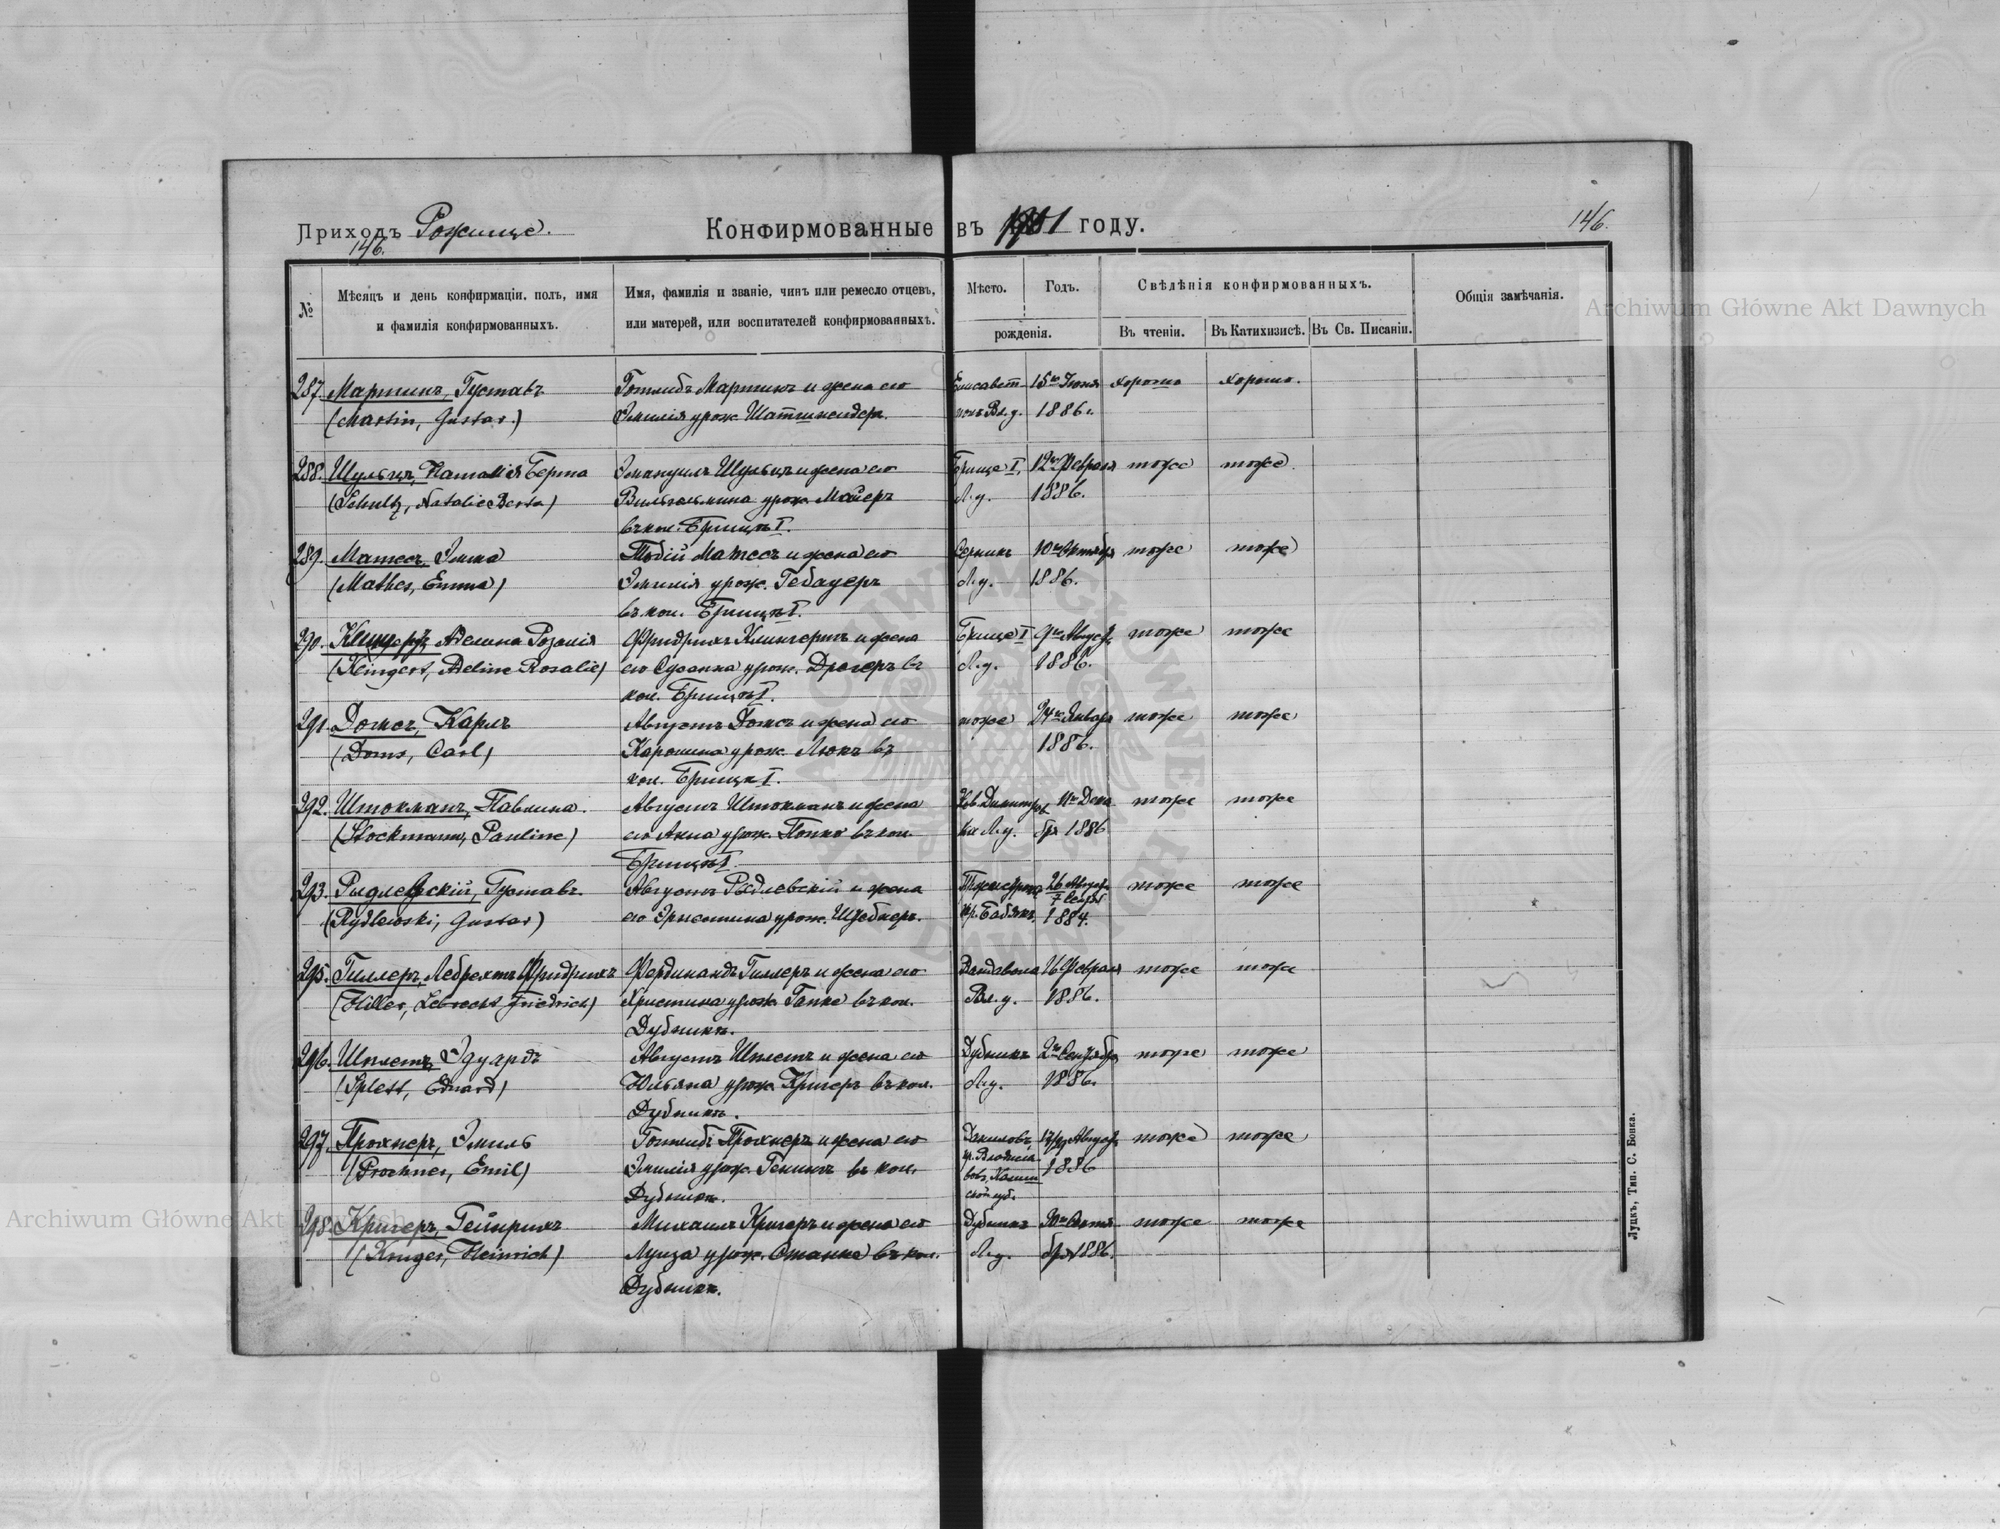 Приходъ Рожище.
146.
Конфирмованные въ 1901 году.
146.
№
Мѣсяцъ и день конфирмаціи, полъ, имя
и фамилія конфирмованныхъ.
Имя, фамилія и званіе, чинъ или ремесло отцевъ,
или матерей, или воспитателей конфирмованныхъ.
Мѣсто.
Годъ.
рожденія.
Свѣдѣнія конфирмованныхъ.
Въ чтеніи.
Въ Катихизисѣ.
Въ Св. Писаніи.
Общія замѣчанія.
287. Мартинъ, Густавъ Готлибъ Мартинъ и жена его 15го Іюня хорошо хорошо.
(Martin, Gustav.) Эмилія урож. 1886.
288. Шульцъ, Наталія Берта Эмануилъ Шульцъ и жена его Брище I, 12го Февраля тоже тоже.
(Schultz, Natalie Berta) Вильгельмина урож. Майеръ Л.у. 1886.
въ кол. Брищъ I.
289. Матесъ, Эмма Тобій Матесъ и жена его 10го Октября тоже тоже
(Mathes, Emma) Эмилія урож. Гебауеръ Л.у. 1886.
въ кол. Брищъ I.
290. Аделина Розалія Фридрихъ Клингертъ и жена Брище I 9го Августа тоже тоже
(Klingert, Adeline Rosalie) его Сузанна урож. Дрегеръ въ Л.у. 1886.
кол. Брищъ I.
291. Домсъ, Карлъ Августъ Домсъ и жена его тоже 24го Января тоже тоже
(Doms, Carl) Каролина урож. Люкъ въ 1886.
кол. Брищъ I.
292. Штокманъ, Павлина. Августъ Штокманъ и жена 11го Дека тоже тоже
(Stockmann, Pauline) его Анна урож. въ кол. Л.у. бря 1886
Брищъ I
293. Рыдлевскій, Густавъ. Августъ Рыдлевскій и жена 26 Августа / 7 Сентяб тоже тоже
(Rydlewski, Gustav) его Эрнестина урож. 1884.
295. Гиллеръ, Лебрехтъ Фридрихъ Фердинандъ Гиллеръ и жена его 16 Февраля тоже тоже
(Hiller, Lebrecht Friedrich) Христина урож. Ганке въ кол. Вл.у. 1886.
Дубникъ.
296. Шплетъ Эдуардъ Августъ Шплетъ и жена его Дубникъ 2го Сентября тоже тоже
(Splett, Eduard) Юльяна урож. Кригеръ въ кол. Л.у. 1886.
Дубникъ.
297. Прохнеръ, Эмиль Готлибъ Прохнеръ и жена его 17/29 Августа тоже тоже
(Prochner, Emil) Эмилія урож. въ кол. 1886
Дубникъ.
298. Кригеръ, Гейнрихъ Михаилъ Кригеръ и жена его Дубникъ 30го Октя тоже тоже
(Kruger, Heinrich) Луиза урож. Станке въ кол. Л.у. бря 1886.
Дубникъ.
Луцкъ, Тип. С. Бонка.
Archiwum Główne Akt Dawnych
Archiwum Główne Akt Dawnych